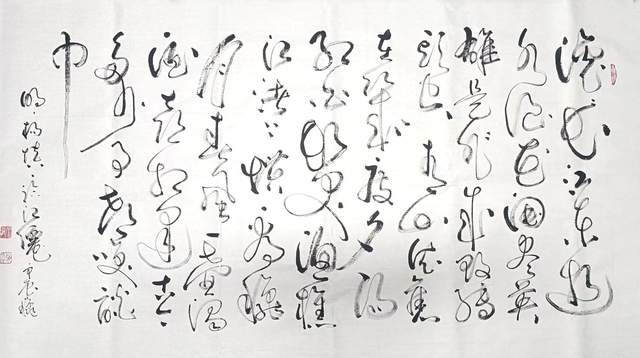 滚滚长江东逝
水浪花淘尽英
雄是非成败转
头空青山依旧
在几度夕阳
红白发渔樵
江渚上惯看秋
月春风一壶浊
酒喜相逢古今
多少事都付笑谈
中
明杨慎临江仙